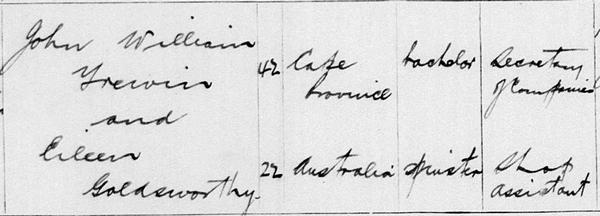 John William
Trewin 42 Cape bachelor Secretary
Province of Companies
and
Eileen 22 Australia spinster Shop
Goldsworthy. assistant